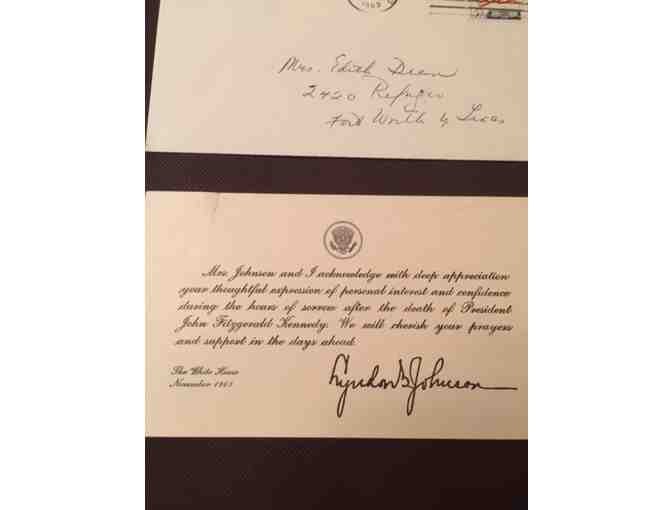 1963
Mrs. Edith Deen
2420 Refugio
Fort Worth 6, Texas
Mrs. Johnson and I acknowledge with deep appreciation
your thoughtful expression of personal interest and confidence
during the hours of sorrow after the death of President
John Fitzgerald Kennedy. We will cherish your prayers
and support in the days ahead.
The White House
November 1963
Lyndon B Johnson